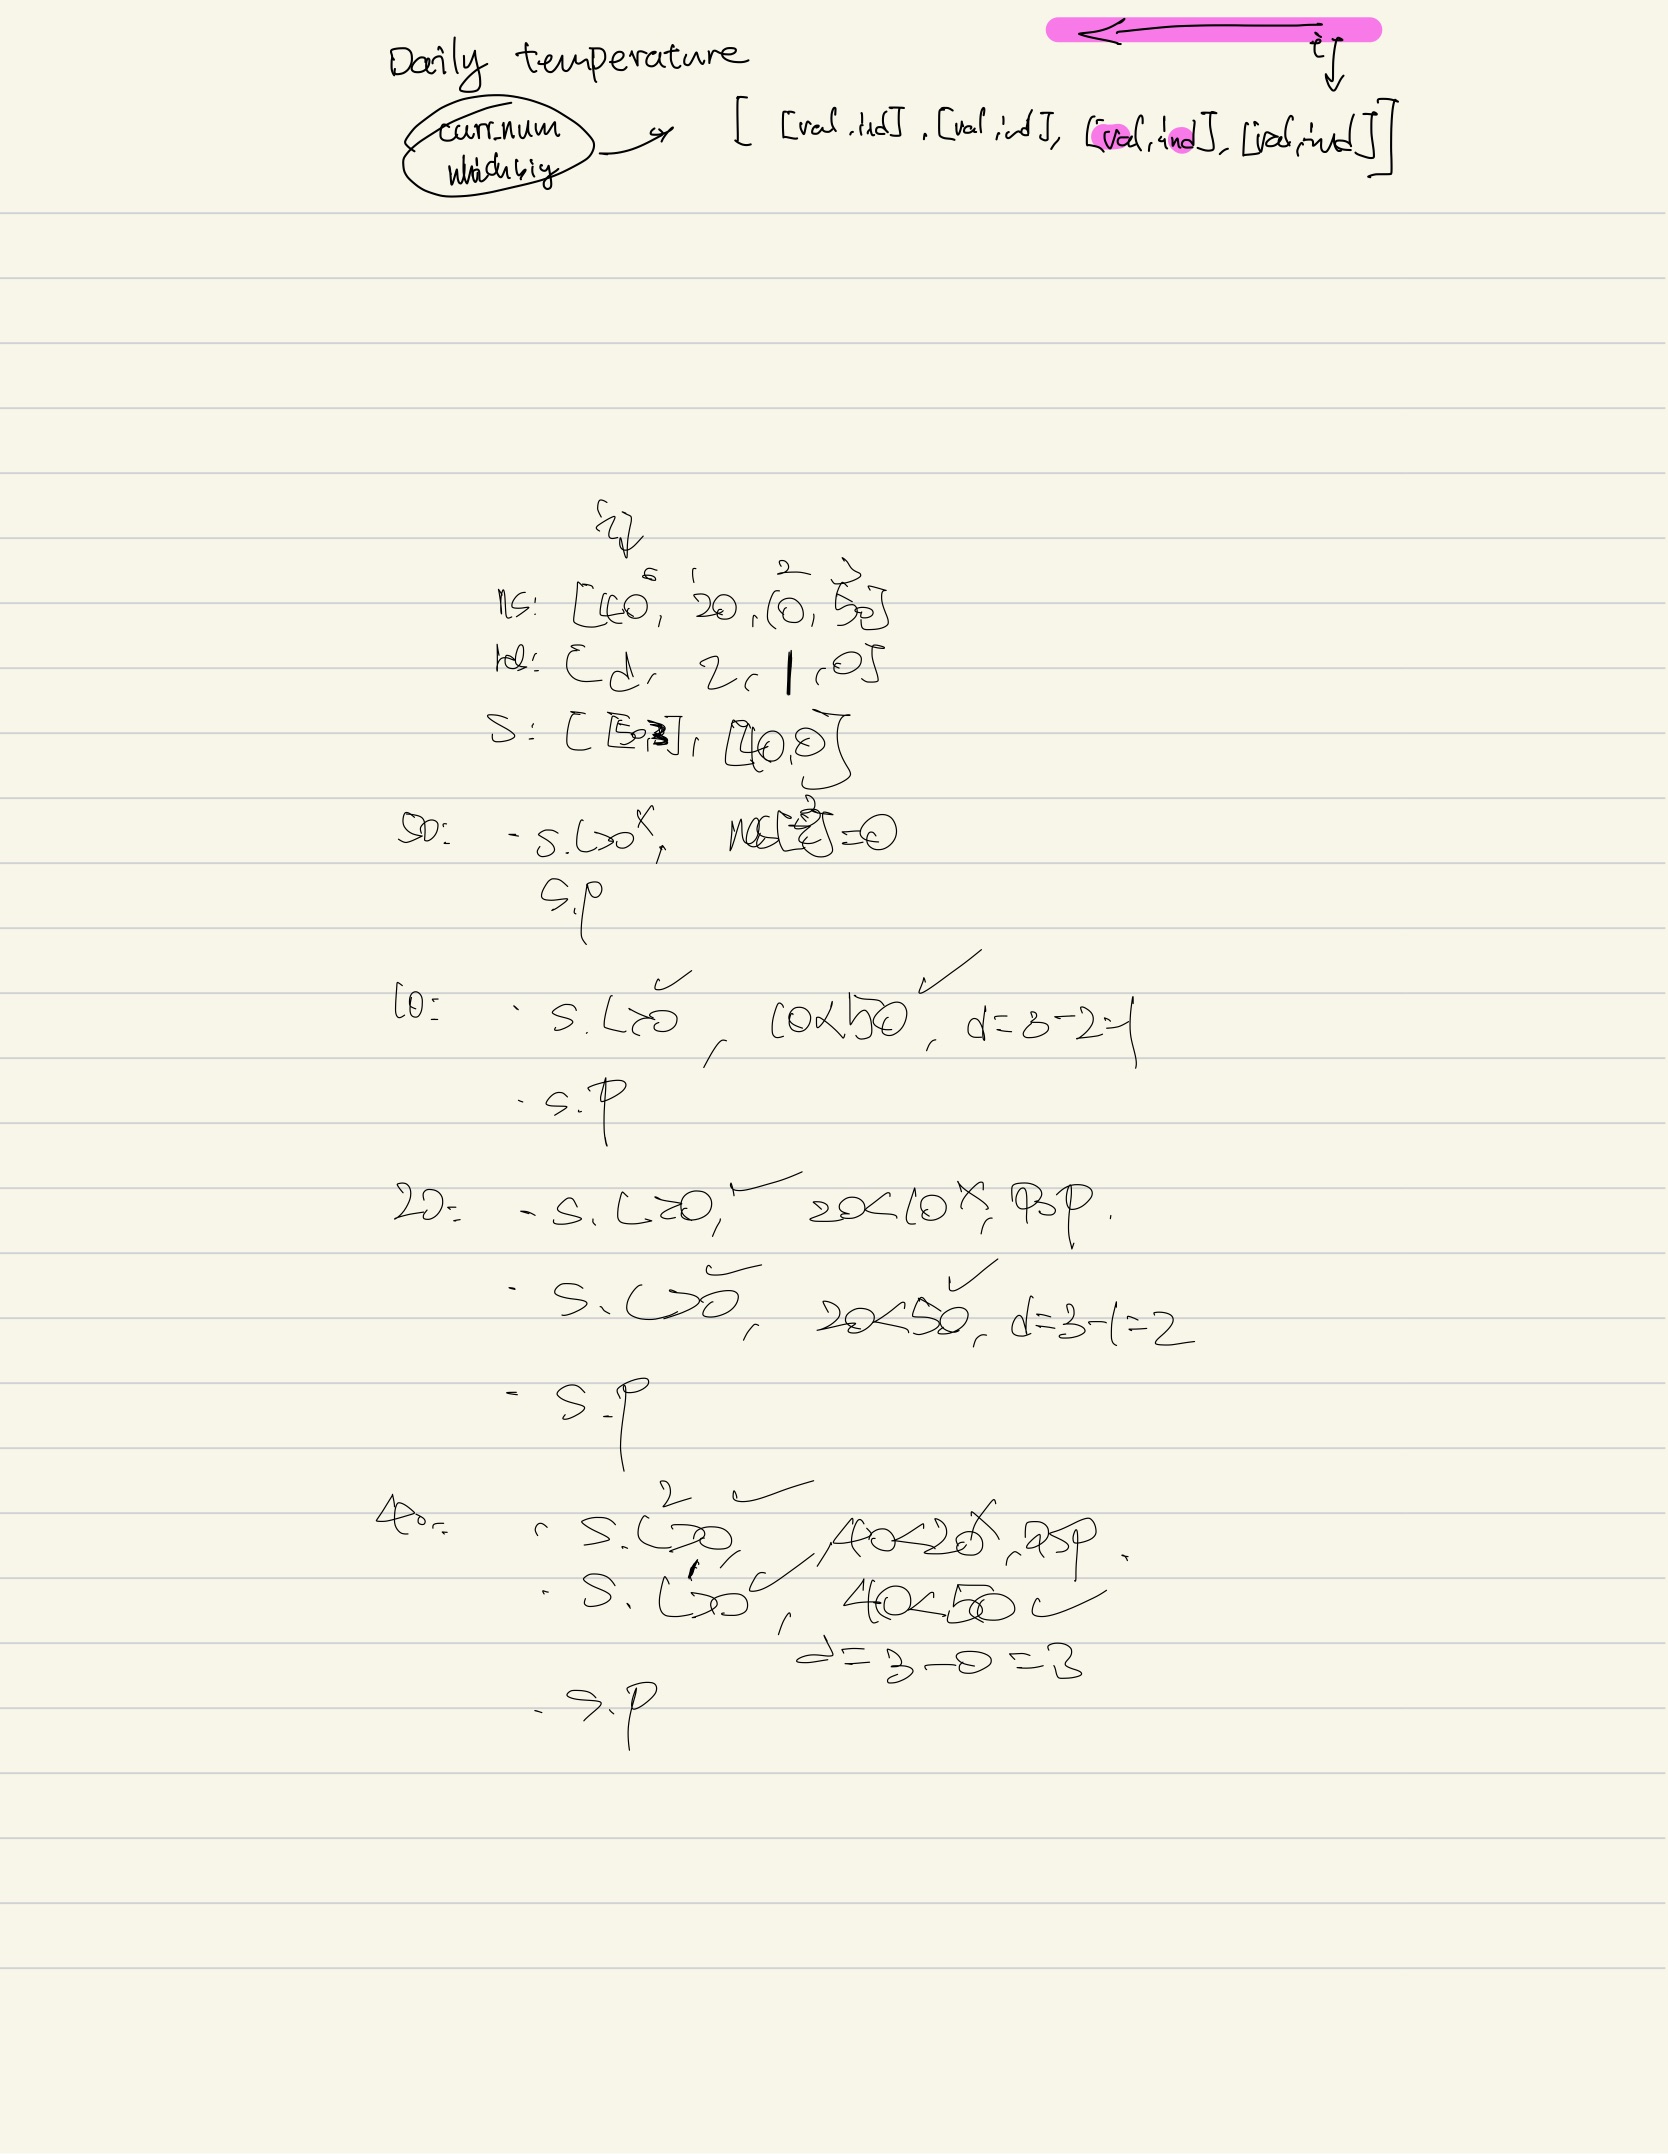 Daily temperature
i
curr_num
which big
[ [val, ind], [val, ind], [val, ind], [val, ind] ]
i
0 1 2 3
ns: [40, 20, 10, 50]
[d, 2, 1, 0]
S: [ [50,3], [40,0]
50: - s.L>0 x, [3]=0
S.p
10: · s.L>0 ✓, 10<50 ✓, d=3-2=1
· s.p
20: - s.L>0, ✓ 20<10 x,
· s.L>0 ✓, 20<50 ✓, d=3-1=2
- s.p
2
40: · s.L>0, ✓ 40<20 x,
1
· s.L>0 ✓, 40<50 ✓
d=3-0=3
· s.p